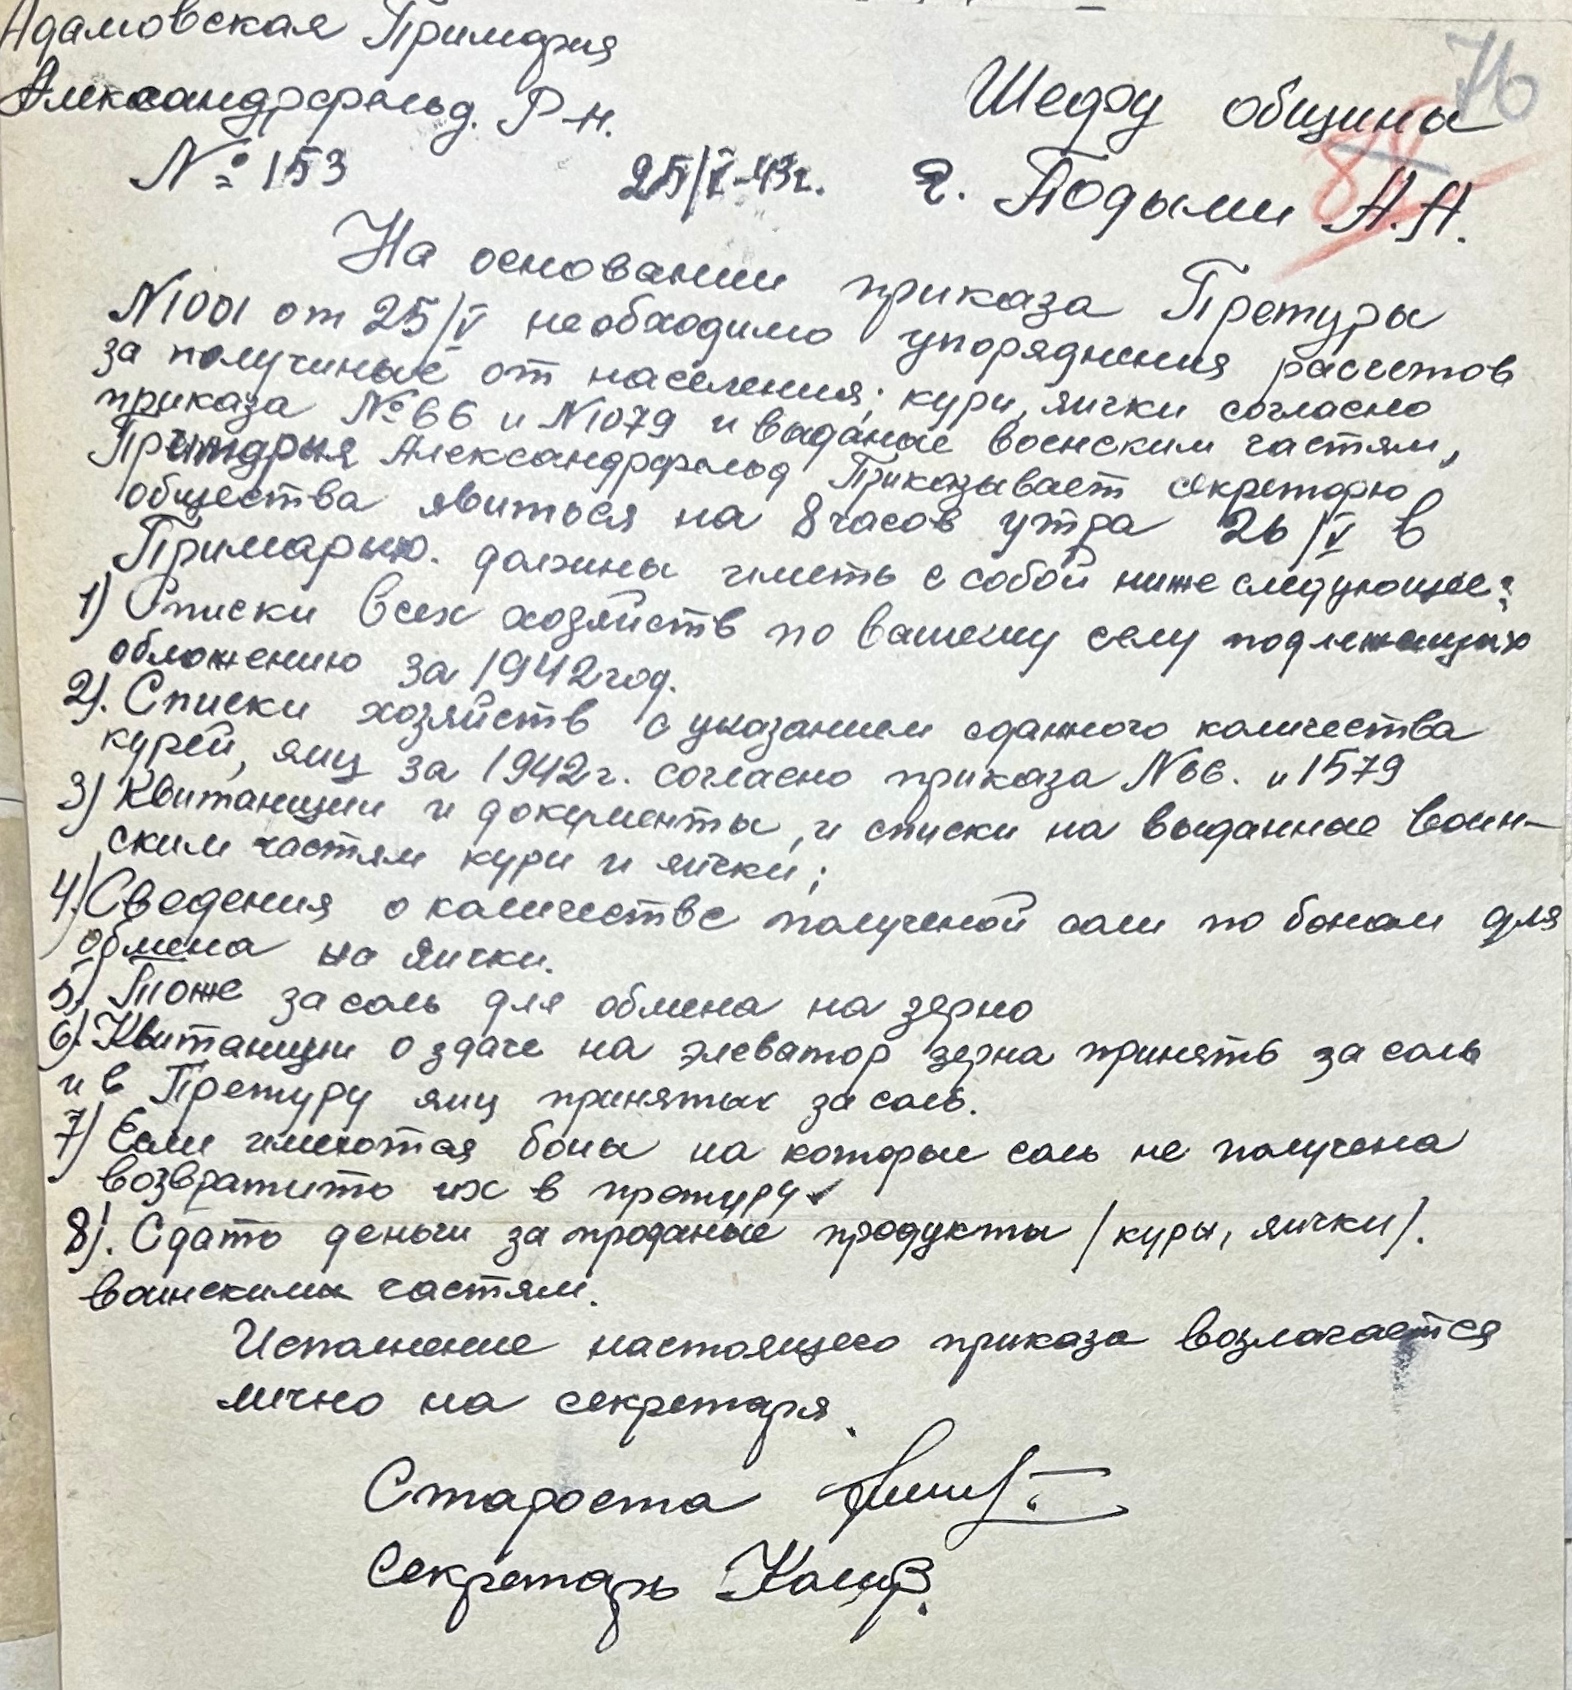 Адамовская Примария
Александрфельд. Р-н.
№ 153 25/V-43г.
76
88
Шефу общины
г. Подыми А.А.
На основании приказа Претуры
N1001 от 25/V необходимо упоряднения расчетов
за получиные от населения; кури, яички согласно
приказа №66 и N1079 и выданые военским частям,
Примария Александрфельд Приказывает секреторю
общества явиться на 8 часов утра 26/V в
Примарию. должны иметь с собой ниже следующее:
1) Списки всех хозяйств по вашему селу подлежащих
обложению за 1942 год.
2). Списки хозяйств с указанием сданного количества
курей, яиц за 1942 г. согласно приказа N66. и 1579
3) Квитанции и документы, и списки на выданные воин-
ским частям кури и яички;
4.) Сведения о количестве полученой соли по бонам для
обмена на яички.
5) Тоже за соль для обмена на зерно
6). Квитанции о здаче на элеватор зерна принять за соль
и в Претуру яиц принятых за соль.
7) Если имеются боны на которые соль не получена
возвратить их в претуру
8). Сдать деньги за проданые продукты /куры, яички/.
воинскими частям.
Исполнение настоящего приказа возлагается
лично на секретаря.
Староста
Секретарь